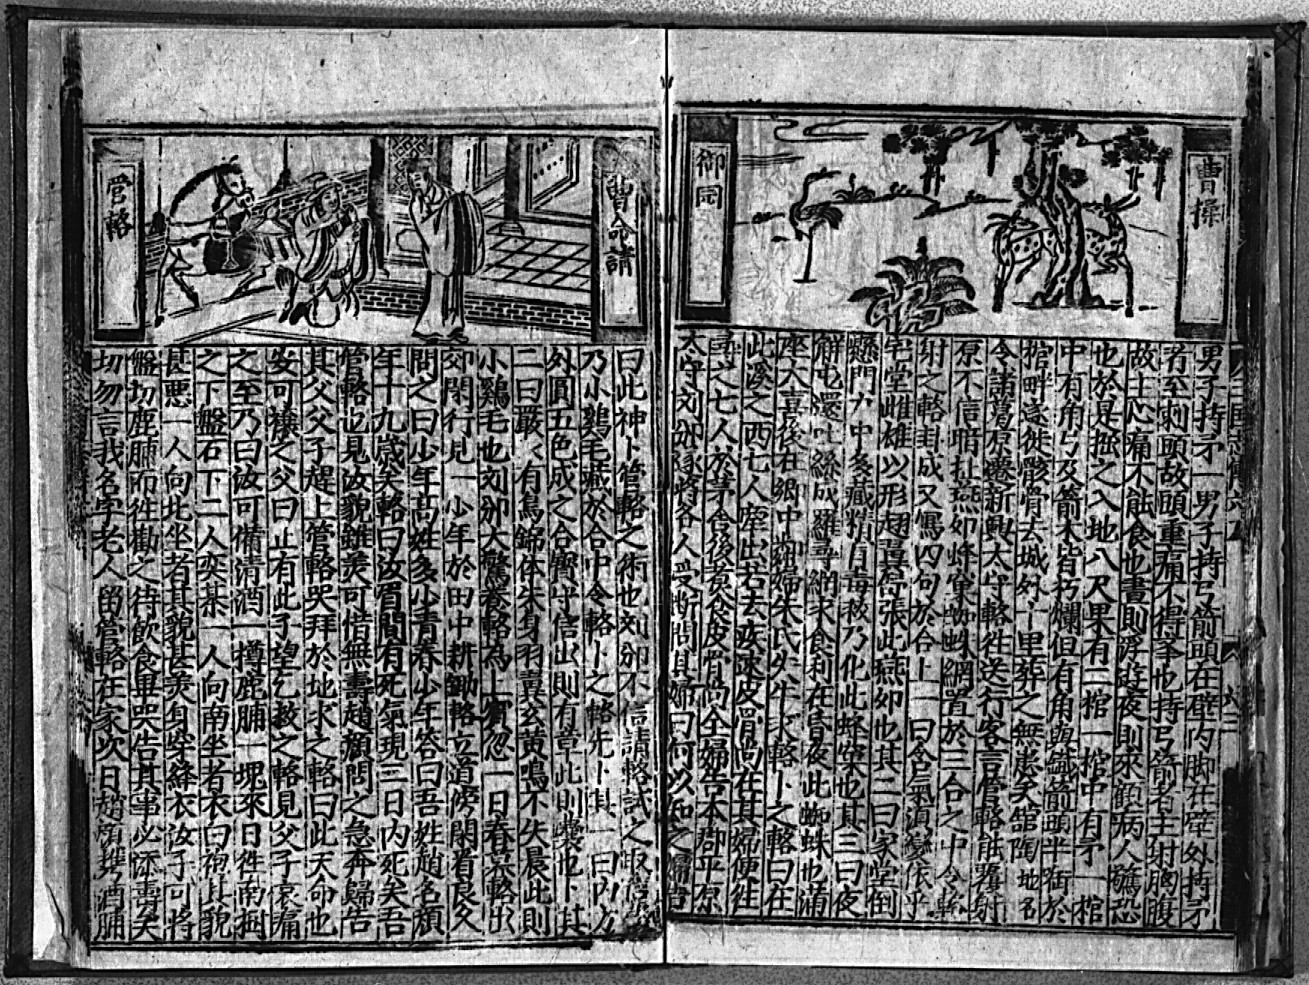 曹操
御園
男子持矛一男子持弓箭頭在壁內脚在壁外持矛
者至刺頭故頭重痛不得爭也持弓箭者主射胸腹
故主心痛不能食也晝則浮遊夜則來顧病人驚恐
也於是掘之入地八尺果有二棺一棺中有矛一棺
中有角弓及箭木皆朽爛但有角與鐵箭頭半街於
棺畔遂徙骸骨去城外十里葬之無患矣舘陶地名
令諸葛原遷新興太守輅徃送行客言管輅能覆射
原不信暗扯燕卵蜂窠蜘蛛網置於三合之中令輅
射之輅封成又寫四句於合上一曰含氣湏變依乎
宅堂雌雄以形翅翼舒張此燕卵也其二曰家堂倒
懸門戶中多藏精育毒秘乃化此蜂窠也其三曰夜
解屯還吐絲成羅尋網求食利在昏夜此蜘蛛也滿
座大喜後在鄉中老婦失牛求輅卜之輅曰在
此溪之西七人牽出若去疾踈皮骨尚在其婦便徃
尋之七人於茅舍後煮食皮骨尚全婦告本郡平原
太守刘邠遂將各人受斷問其婦曰何以知之婦言
曹命請
管輅
曰此神卜管輅之術也刘邠不信請輅試之取信
乃小鷄毛藏於合中令輅卜之輅先卜其一曰內方
外圓五色成之合寶守信出則有章此則囊也卜其
二曰巖巖有鳥錦体朱身羽翼玄黃鳴不失晨此則
小鷄毛也刘邠大驚養輅為上賓忽一日春景輅出
郊閑行見一少年於田中耕鋤輅立道傍閑看良久
問之曰少年高姓多少青春少年答曰吾姓趙名顏
年十九歲矣輅曰汝眉間有死氣現三日內死矣吾
管輅也見汝貌雖羨可惜無壽趙顏問之急奔歸告
其父父子趕上管輅哭拜於地求之輅曰此天命也
安可禳之父曰止有此子望乞救之輅見父子哀痛
之至乃曰汝可備清酒一樽鹿脯一塊來日徃南
之下盤石下二人奕棊一人向南坐者衣白袍其貌
甚惡一人向北坐者其貌甚羨身穿絳衣汝子可將
盤切鹿脯而徃勸之待飲食畢哭告其事必添壽矣
切勿言我名字老人留管輅在家次日趙顏携酒脯